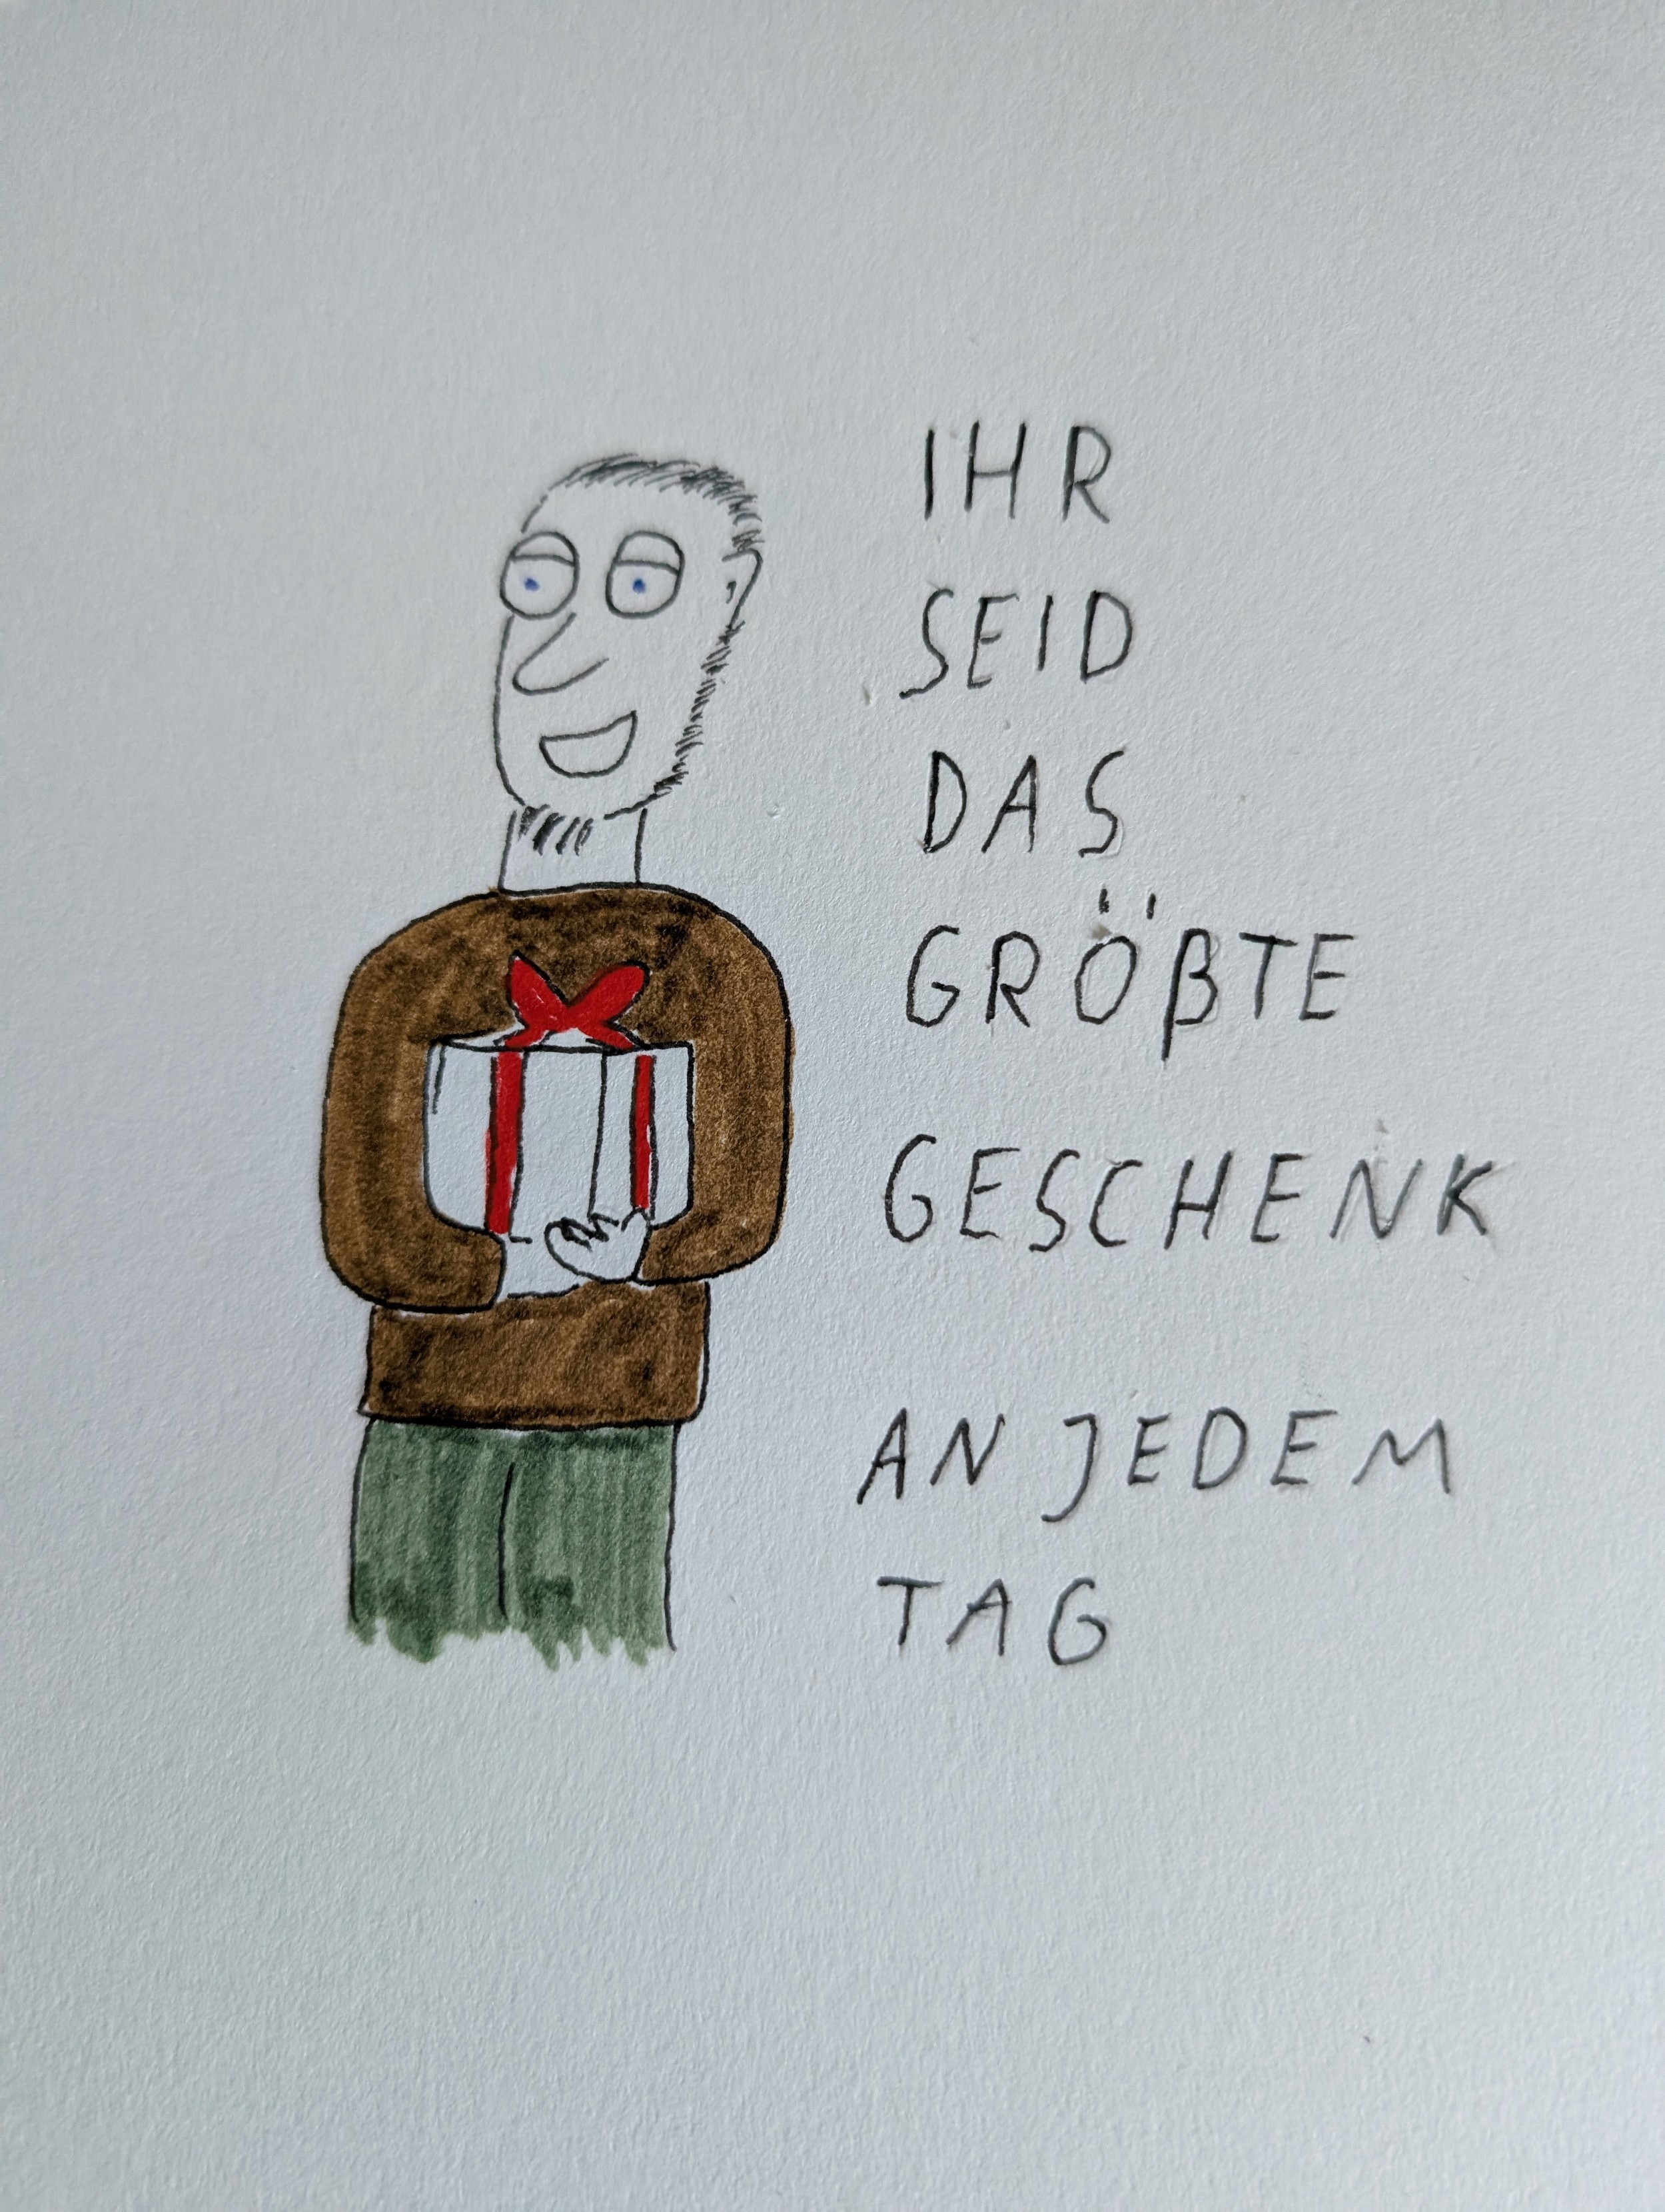 IHR
SEID
DAS
GRÖßTE
GESCHENK
AN JEDEM
TAG